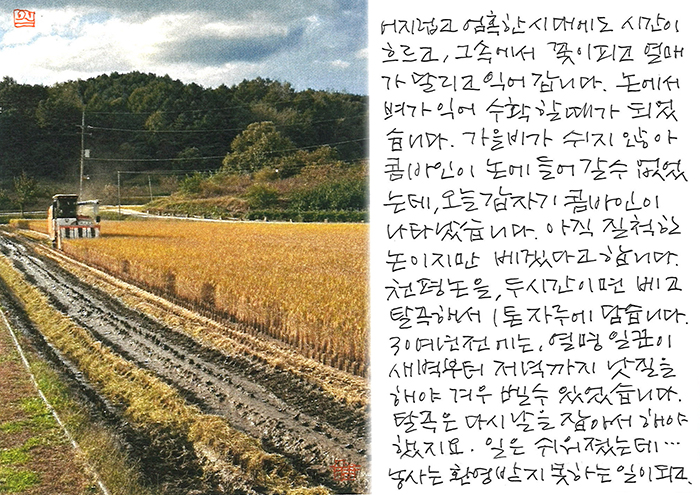 어지럽고 엄혹한 시대에도 시간이
흐르고, 그속에서 꽃이피고 열매
가 달리고 익어 갑니다. 논에서
벼가 익어 수확할때가 되었
습니다. 가을비가 쉬지 않아
콤바인이 논에 들어갈수 없었
는데, 오늘 갑자기 콤바인이
나타났습니다. 아직 질척한
논이지만 베겠다고 합니다.
천평논을, 두시간이면 베고
탈곡해서 1톤 자루에 담습니다.
30여년전에는, 열명 일꾼이
새벽부터 저녁까지 낫질을
해야 겨우 벨수 있었습니다.
탈곡은 다시 날을 잡아서 해야
했지요. 일은 쉬워졌는데…
농사는 환영받지 못하는 일이되고.